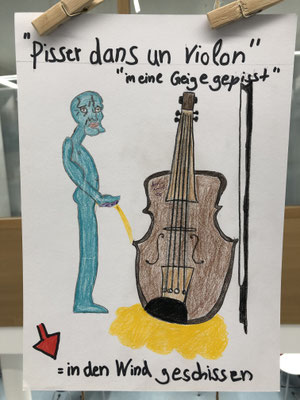 "Pisser dans un Violon"
"in eine Geige gepisst"
= in den Wind geschissen